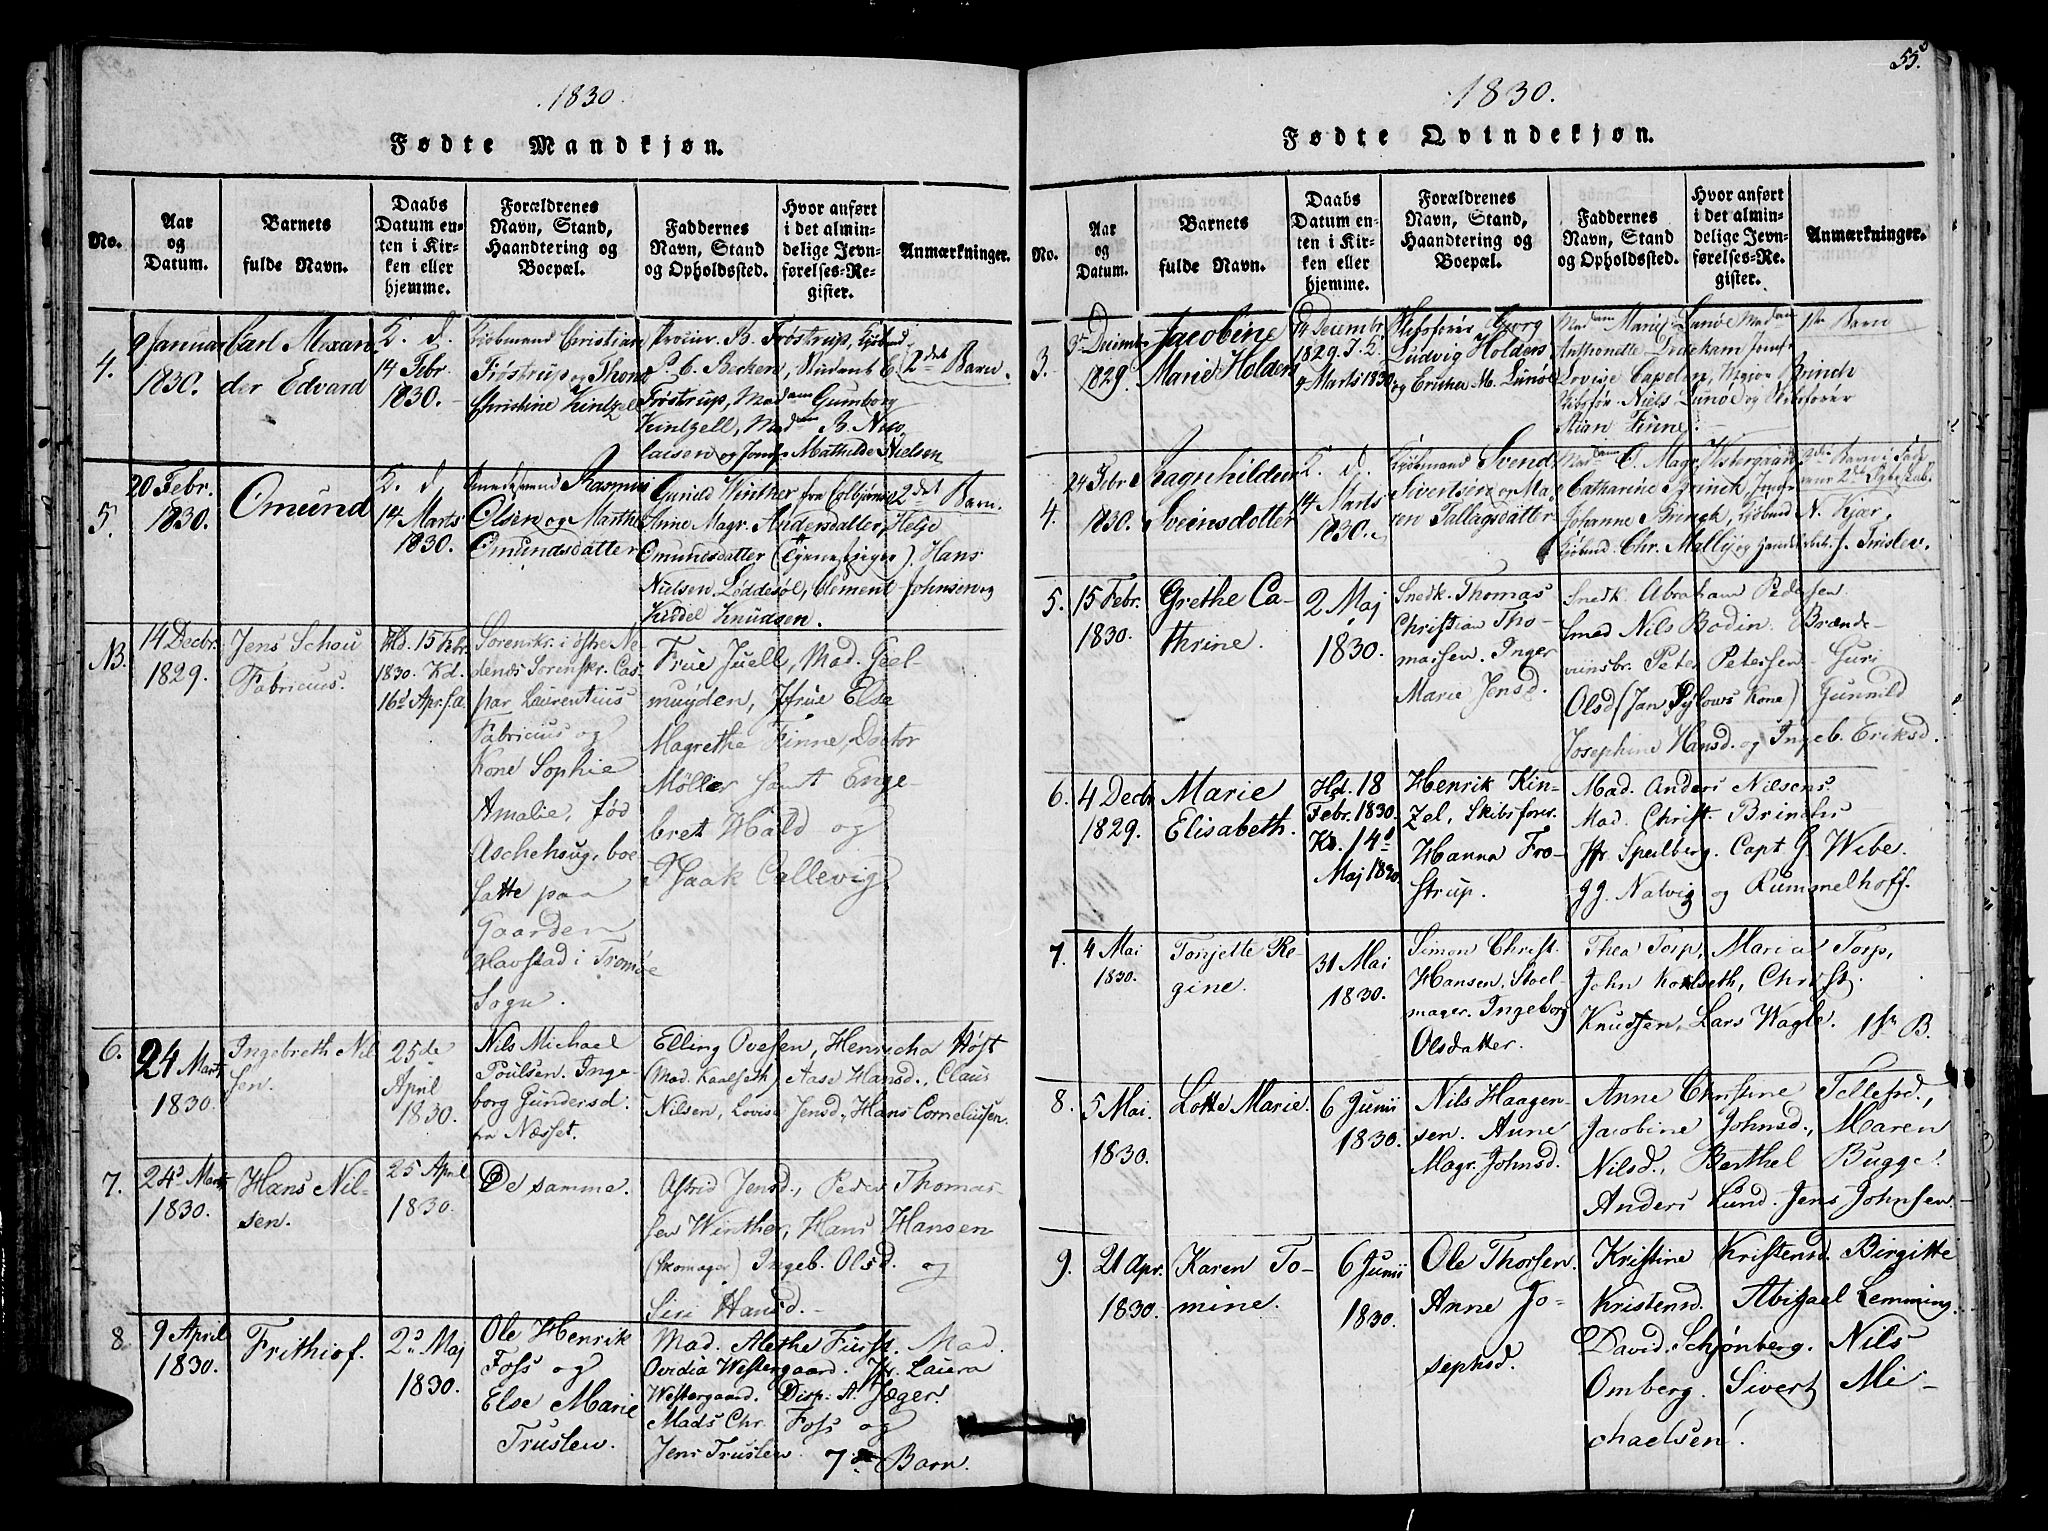 1830.
Fødte Mandkjøn.
No.
Aar
og
Datum.
Barnets
fulde Navn.
Daabs
Datum en-
ten i Kir-
ken eller
hjemme.
Forældrenes
Navn, Stand,
Haandtering og
Boepæl.
Faddernes
Navn, Stand
og Opholdssted.
Hvor anført
i det almin-
delige Jevn-
førelses-Re-
gister.
Anmærkninger.
4.
9 Januar
1830.
Carl Alexan
der Edvard
14 Febr.
1830.
Kjøbmand Christian
Frøstrup og Thom
Christine Kintzel
B. Frøstrup, Kjøbmd.
P. C. Beckers, Student C.
Frøstrup, Madam Gumborg
Kintzell, Madam B. Nico
laisen og Jomf. Mathilde Nielsen
2det Barn.
5.
20 Febr.
1830.
Omund
14 Marts
1830.
Rasmus
Olsen og Marthe
Omundsdatter
Gunild Winther fra Colbjørns
Anne Magr. Andersdatter, Helje
Omundsdatter (Tjenestpiger). Hans
Nielsen Løddesøl, Clement Johnsen og
Kiddel Knudsen.
2det Barn.
NB.
14 Decbr.
1829.
Jens Schou
Fabricius.
Hd. 15 Febr.
1830. Kd.
16d Apr. s.a.
Sorenskr. i østre Ne
denes Sorenskr. Cas-
par Laurentius
Fabricius og
Kone Sophie
Amalie, fød
Aschehoug, boe
satte paa
Gaarden
Havstad i Tromøe
Sogn.
Frue Juell, Mad. Geel-
muyden, Jfrue Else
Magrethe Finne, Doctor
Møller samt Enge-
bret Hald og
Isaak Callevig
6.
24 Marts
1830.
Ingebreth Nil
sen.
25de
April
1830.
Nils Michael
Poulsen. Inge-
borg Gundersd.
fra Næsset.
Elling Ovesen, Henricha Høst
(Mad. Kaalseth) Aase Hansd., Claus
Nilsen, Lovise Jensd., Hans Corneliussen.
7.
24d Marts
1830.
Hans Nil-
sen.
25 April
1830.
De samme.
Astrid Jensd., Peder Thomas-
sen Winther, Hans Hansen
(Skomager) Ingeb. Olsd. og
Siri Hansd.
8.
9 April
1830.
Frithiof.
2d Maj
1830.
Ole Henrik
Foss og
Else Marie
Truslew.
Mad. Alethe Fürst. Mad.
Ovidia Westergaard. Jfr. Laura
Westergaard. Disp. A. Jæger.
Mads Chr. Foss og
Jens Truslew. 7de Barn.
55.
1830.
Fødte Qvindekjøn.
No.
Aar
og
Datum.
Barnets
fulde Navn.
Daabs
Datum en-
ten i Kir-
ken eller
hjemme.
Forældrenes
Navn, Stand,
Haandtering og
Boepæl.
Faddernes
Navn, Stand
og Opholdssted.
Hvor anført
i det almin-
delige Jevn-
førelses-Re-
gister.
Anmærkninger.
3.
3die Decembr.
1829.
Jacobine
Marie Holders
14 Decembr.
1829.
4 Marts 1830
Skibsfører Georg
Ludvig Holders
og Ericha M. Lunøe
Madam Marie Lunøe Madam
Anthonette Dedekam Jomf.
Lovise Capelen, Major Brinch
Skibsfør. Niels Lunøe og Skibsfører
Stian Finne.
1ste Barn
4.
24 Febr.
1830.
Ragnhilden
Sveinsdotter
14 Marts
1830.
Kjøbmand Svend
Sivertsen og Ma
ren Tallagsdatter
Madam O. Magr. Westergaard
Catharine Brinch, Jomfr.
Johanne Brinch, Kjøbmd N. Kjær,
Kjøbmd. Chr. Mally og
5.
15 Febr.
1830.
Grethe Ca-
thrine.
2 Maj
1830.
Snedk. Thomas
Christian Tho-
massen. Inger
Marie Jensd.
Snedk. Abraham Pedersen
Smed Nils Bodin. Brænde-
viinsbr. Peter Petersen Guri
Olsd (Jan Sylows Kone) Gunnild
Josephine Hansd. og Ingeb. Eriksd.
6.
4 Decbr
1829.
Marie
Elisabeth.
Hd. 18
Febr. 1830.
Kd. 14d
Maj 1830
Henrik Kin-
zel, Skibsfører.
Hanna Fro-
strup.
Mad. Anders Nilsens
Mad. Christ. Brinchs
Jfr. Speilberg. Capt. G. Wibe.
gg. Natvig og Rummelhoff.
7.
4 Mai
1830.
Tonjette Re-
gine.
31 Mai
1830.
Simon Christ.
Hansen, Stoel-
mager. Ingeborg
Olsdatter.
Thea Torp, Maria Torp,
John Kolseth, Christ.
Knudsen, Lars Wagle. 1ste B.
8.
5 Mai.
1830.
Lotte Marie.
6 Junii
1830.
Nils Haagen-
sen. Anne
Magr. Johnsd.
Anne Christine Tellefsd.,
Jacobine Johnsd., Maren
Nilsd., Berthel Bugge.
Anders Lund. Jens Johnsen
9.
21 Apr.
1830.
Karen To-
mine.
6 Junii
1830.
Ole Thorsen.
Anne Jo-
sephsd.
Kristine Kristensd. Birgitte
Kristensd. Abigael Lemming.
David Schjønberg. Nils
Omberg. Sivert Mi-
chaelsen.